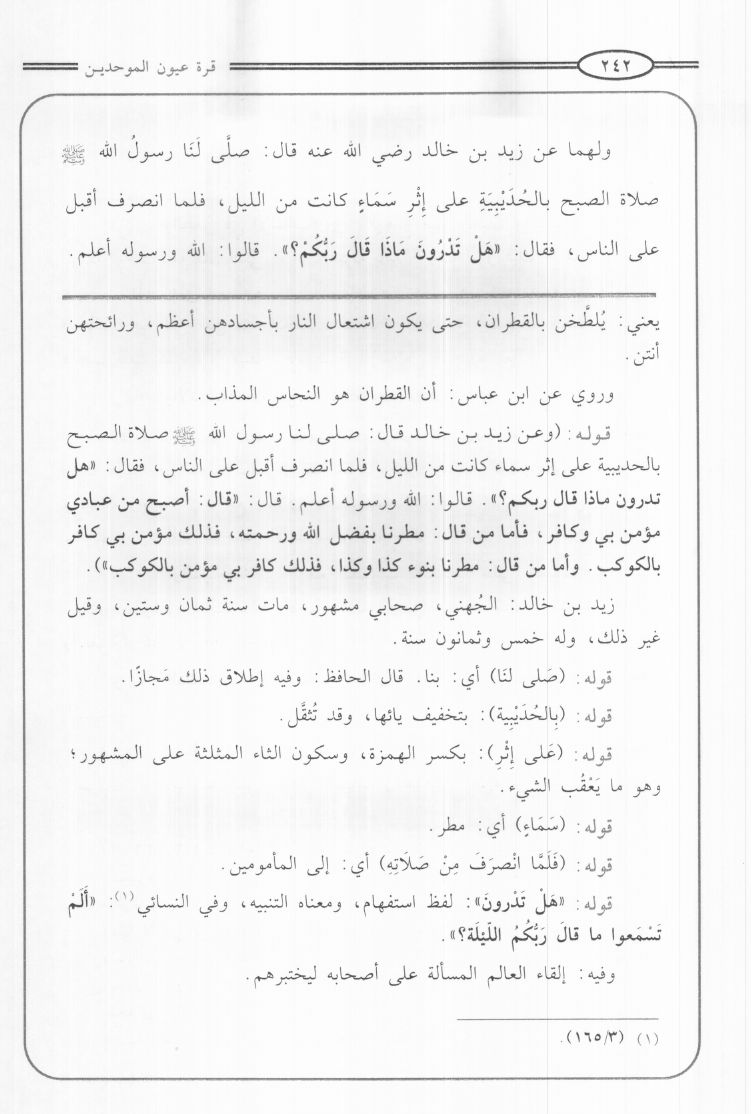 ٢٤٢
قرة عيون الموحدين
ولهما عن زيد بن خالد رضي الله عنه قال: صلَّى لَنَا رسولُ الله ﷺ
صلاة الصبح بالحُدَيْبِيَةِ على إِثْرِ سَمَاءٍ كانت من الليل، فلما انصرف أقبل
على الناس، فقال: «هَلْ تَدْرُونَ مَاذَا قَالَ رَبُّكُمْ؟». قالوا: الله ورسوله أعلم.
يعني: يُلطَّخن بالقطران، حتى يكون اشتعال النار بأجسادهن أعظم، ورائحتهن
أنتن.
وروي عن ابن عباس: أن القطران هو النحاس المذاب.
قوله: (وعن زيد بن خالد قال: صلى لنا رسول الله ﷺ صلاة الصبح
بالحديبية على إثر سماء كانت من الليل، فلما انصرف أقبل على الناس، فقال: «هل
تدرون ماذا قال ربكم؟». قالوا: الله ورسوله أعلم. قال: «قال: أصبح من عبادي
مؤمن بي وكافر، فأما من قال: مطرنا بفضل الله ورحمته، فذلك مؤمن بي كافر
بالكوكب. وأما من قال: مطرنا بنوء كذا وكذا، فذلك كافر بي مؤمن بالكوكب»).
زيد بن خالد: الجُهني، صحابي مشهور، مات سنة ثمان وستين، وقيل
غير ذلك، وله خمس وثمانون سنة.
قوله: (صَلى لنَا) أي: بنا. قال الحافظ: وفيه إطلاق ذلك مَجازًا.
قوله: (بِالحُدَيْبِية): بتخفيف يائها، وقد تُثقَّل.
قوله: (عَلى إِثْرِ): بكسر الهمزة، وسكون الثاء المثلثة على المشهور؛
وهو ما يَعْقُب الشيء.
قوله: (سَمَاءٍ) أي: مطر.
قوله: (فَلَمَّا انْصرَفَ مِنْ صَلَاتِهِ) أي: إلى المأمومين.
قوله: «هَلْ تَدْرونَ»: لفظ استفهام، ومعناه التنبيه، وفي النسائي(١): «أَلَمْ
تَسْمَعوا ما قالَ رَبُّكُمُ اللّيْلَة؟».
وفيه: إلقاء العالم المسألة على أصحابه ليختبرهم.
(١) (٣/١٦٥).